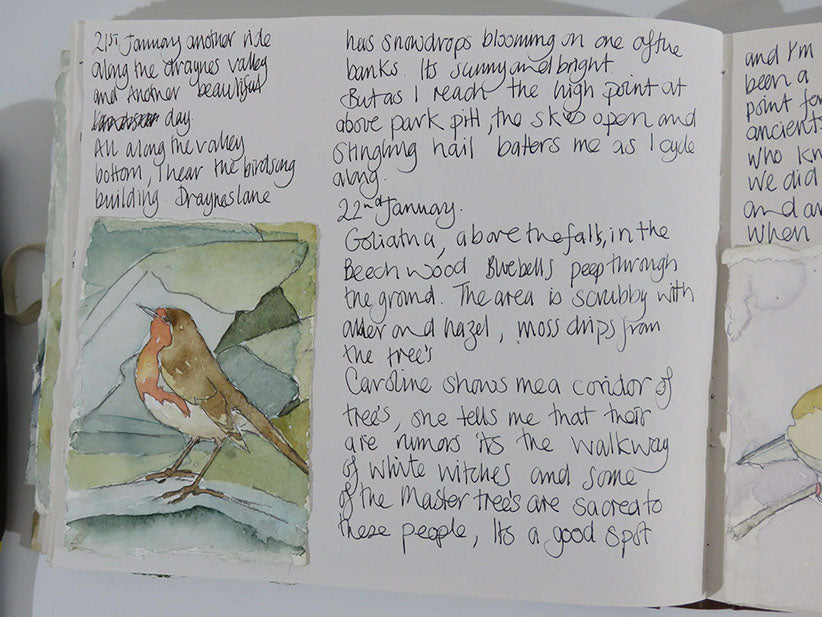 21st January another ride
along the draynes valley
and Another beautiful
day.
All along the valley
bottom, I hear the birdsong
building. Draynes lane
has snowdrops blooming on one of the
banks. Its sunny and bright
But as I reach the high point at
above park pitt, the sk s open and
stingling hail batters me as I cycle
along.
22nd January.
Goliatha, above the falls, in the
Beech wood Bluebells peep through
the ground. The area is scrubby with
alder and hazel, moss drips from
the tree's
Caroline shows me a coridor of
tree's, she tells me that their
are rumors its the walkway
of white witches and some
of the Master tree's are sacred to
these people, Its a good spot
and I'm
been a
point for
ancients
who kn
we did
and an
when